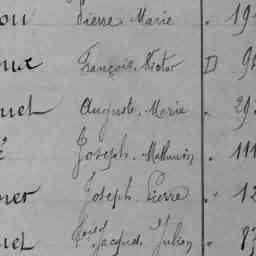 ou Pierre Marie " 19
oux François, Victor □ 90
uel Auguste, Marie " 29
é Joseph, Mathurin " 111
ner Joseph, Pierre " 12
uel Jacques, Julien " 83